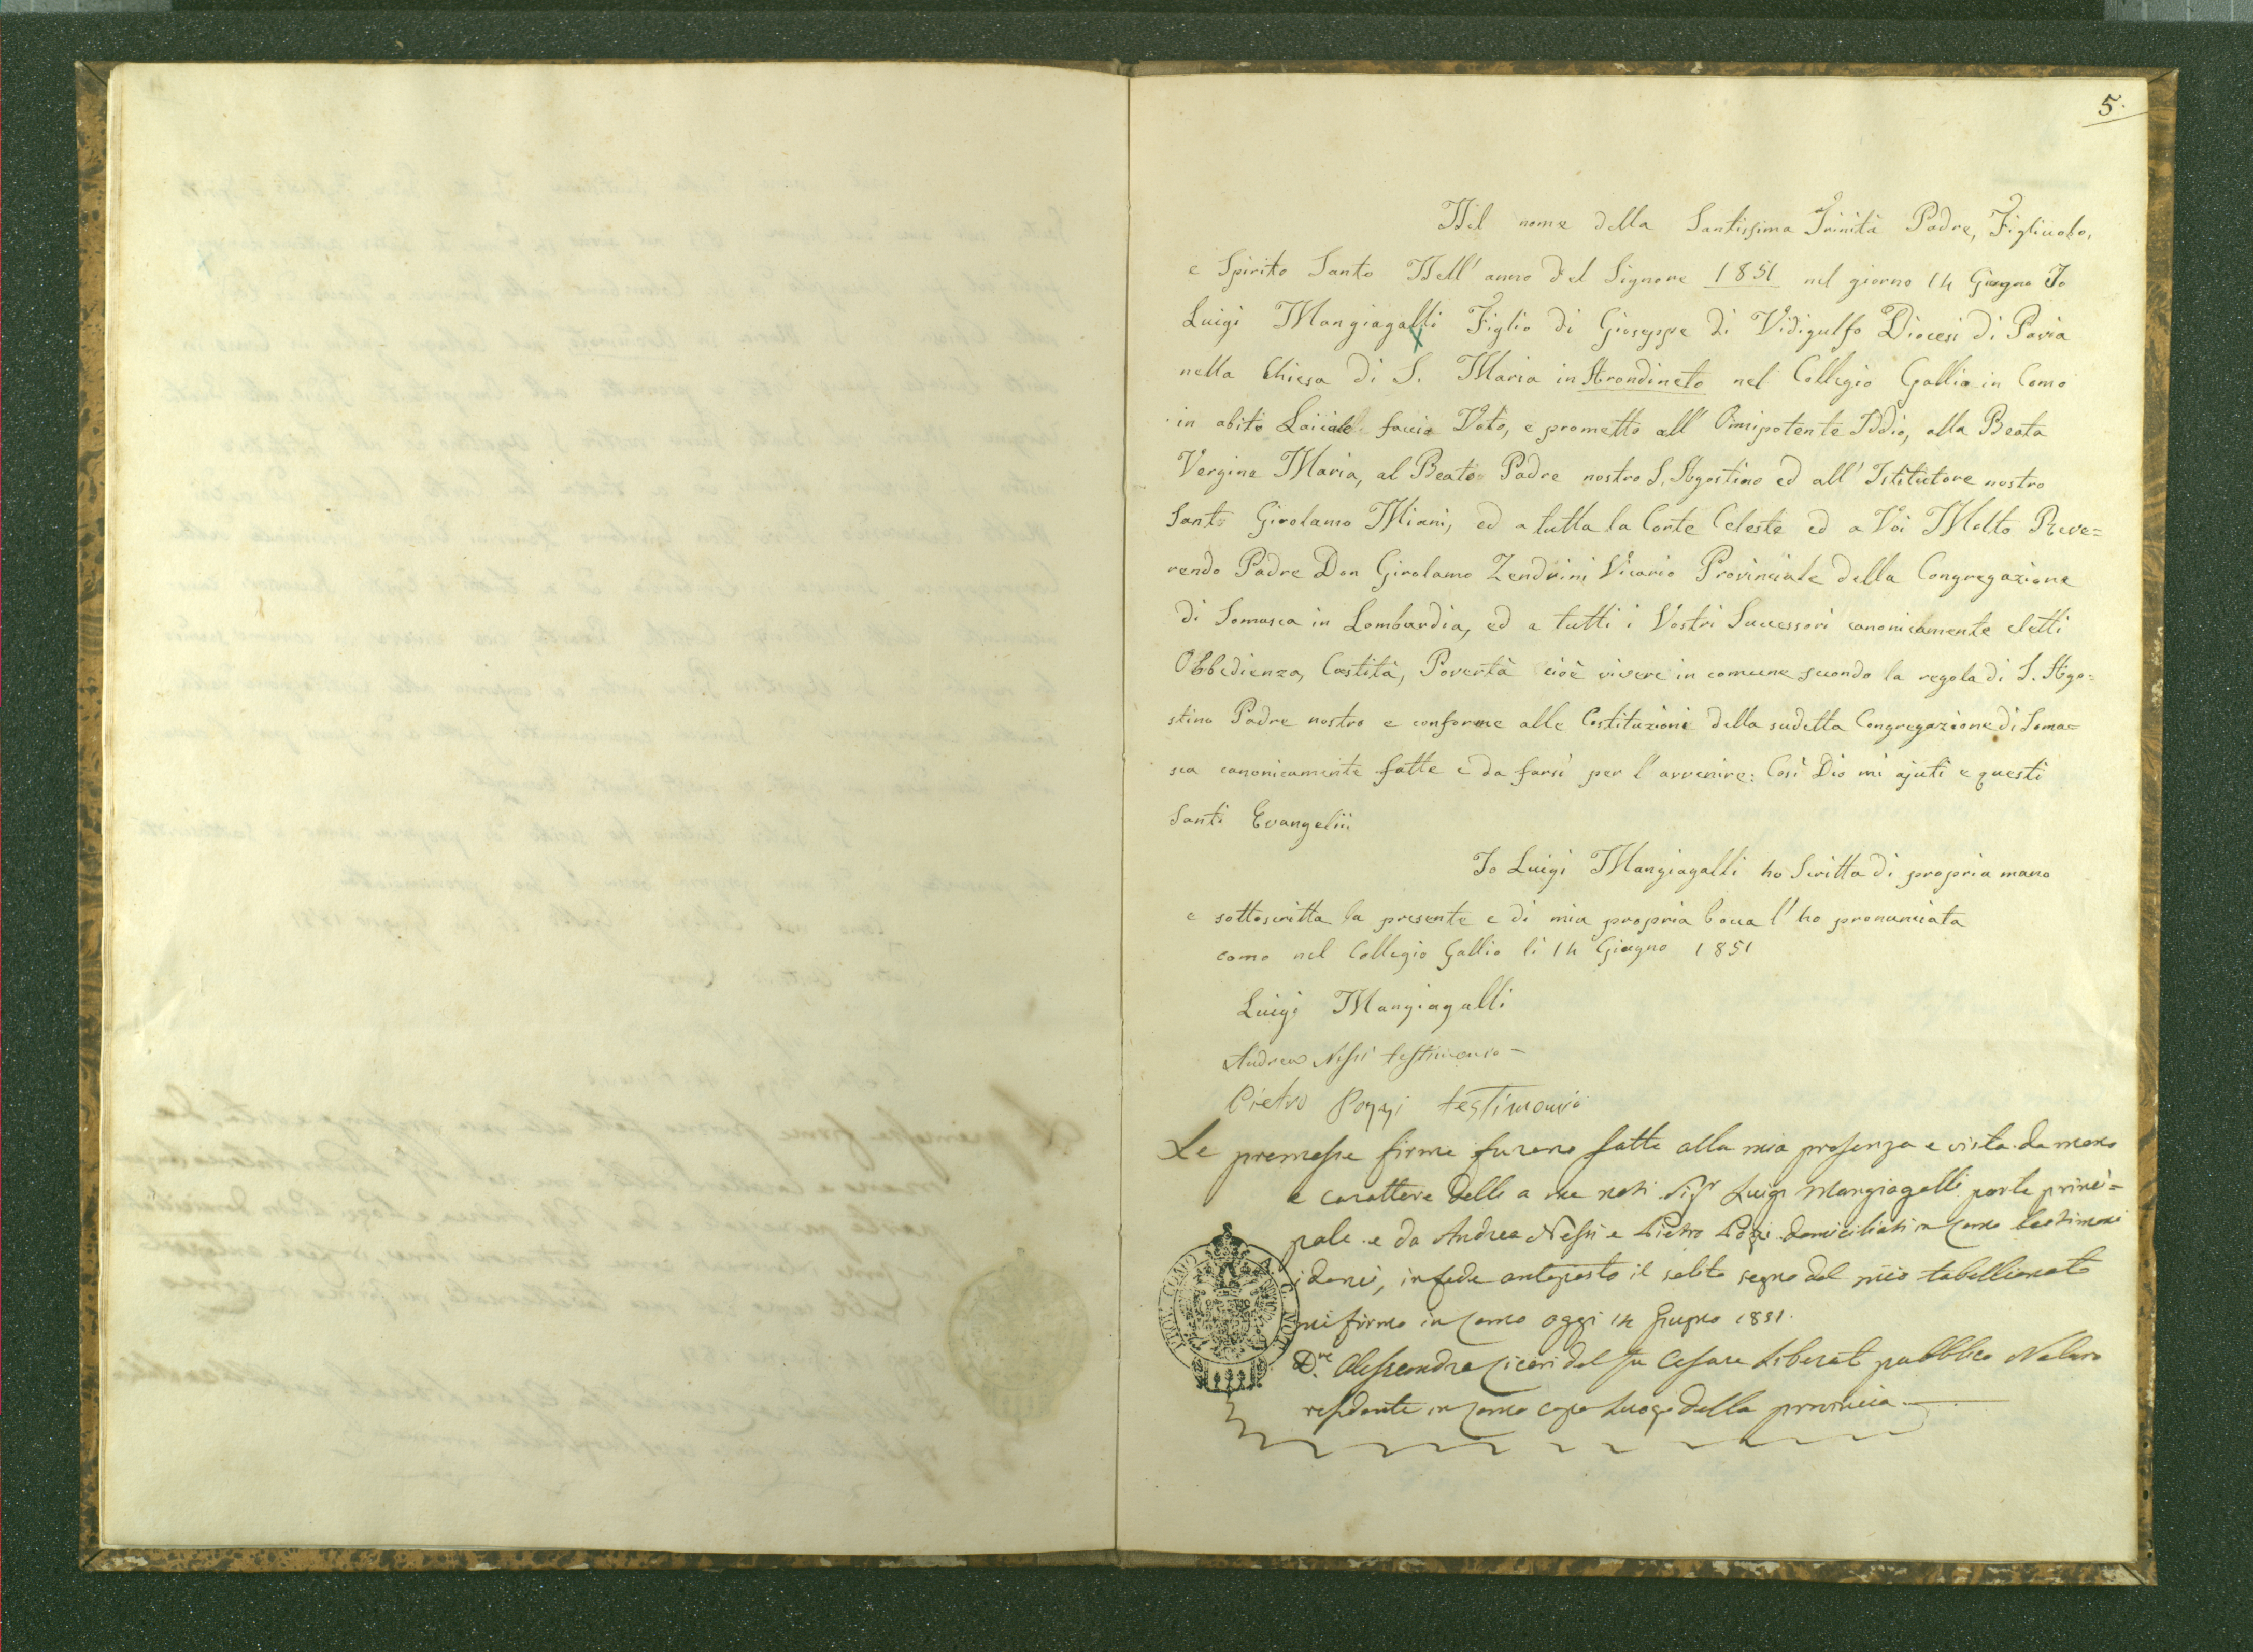 5.
Nel nome della Santissima Trinità Padre, Figliuolo,
e Spirito Santo Nell' anno del Signore 1851 nel giorno 14 Giugno Io
Luigi Mangiagalli Figlio di Giuseppe di Vidigulfo Diocesi di Pavia
nella Chiesa di S. Maria in Arondineto nel Collegio Gallio in Como
in abito Laicale faccio Voto, e prometto all' Omnipotente Iddio, alla Beata
Vergine Maria, al Beato Padre nostro S. Agostino ed all' Istitutore nostro
Santo Girolamo Miani, ed a tutta la Corte Celeste ed a Voi Molto Reve=
rendo Padre Don Girolamo Zendrini Vicario Provinciale della Congregazione
di Somasca in Lombardia, ed a tutti i Vostri Successori canonicamente eletti
Obbedienza, Castità, Povertà cioè vivere in comune secondo la regola di S. Ago=
stino Padre nostro e conforme alle Costituzioni della sudetta Congregazione di Soma=
sca canonicamente fatte e da farsi per l'avvenire: Così Dio mi ajuti e questi
Santi Evangelii
Io Luigi Mangiagalli ho Scritta di propria mano
e sottoscritta la presente e di mia propria bocca l' ho pronunciata
como nel Collegio Gallio li 14 Giugno 1851
Luigi Mangiagalli
Andrea Nessi testimonio
Pietro Poggi testimonio
Le premesse firme furono fatte alla mia presenza e vista da mano
e carattere delli a me noti Sigr Luigi Mangiagalli parte princi=
pale e da Andrea Nessi e Pietro Poggi domiciliati in Como testimoni
idonei, in fede anteposto il solito segno del mio tabellionato
mi firmo in Como oggi 14 Giugno 1851.
Dre. Alessandro Ciceri del fu Cesare Liberat pubblico Notaro
residente in Como capo Luogo della provincia